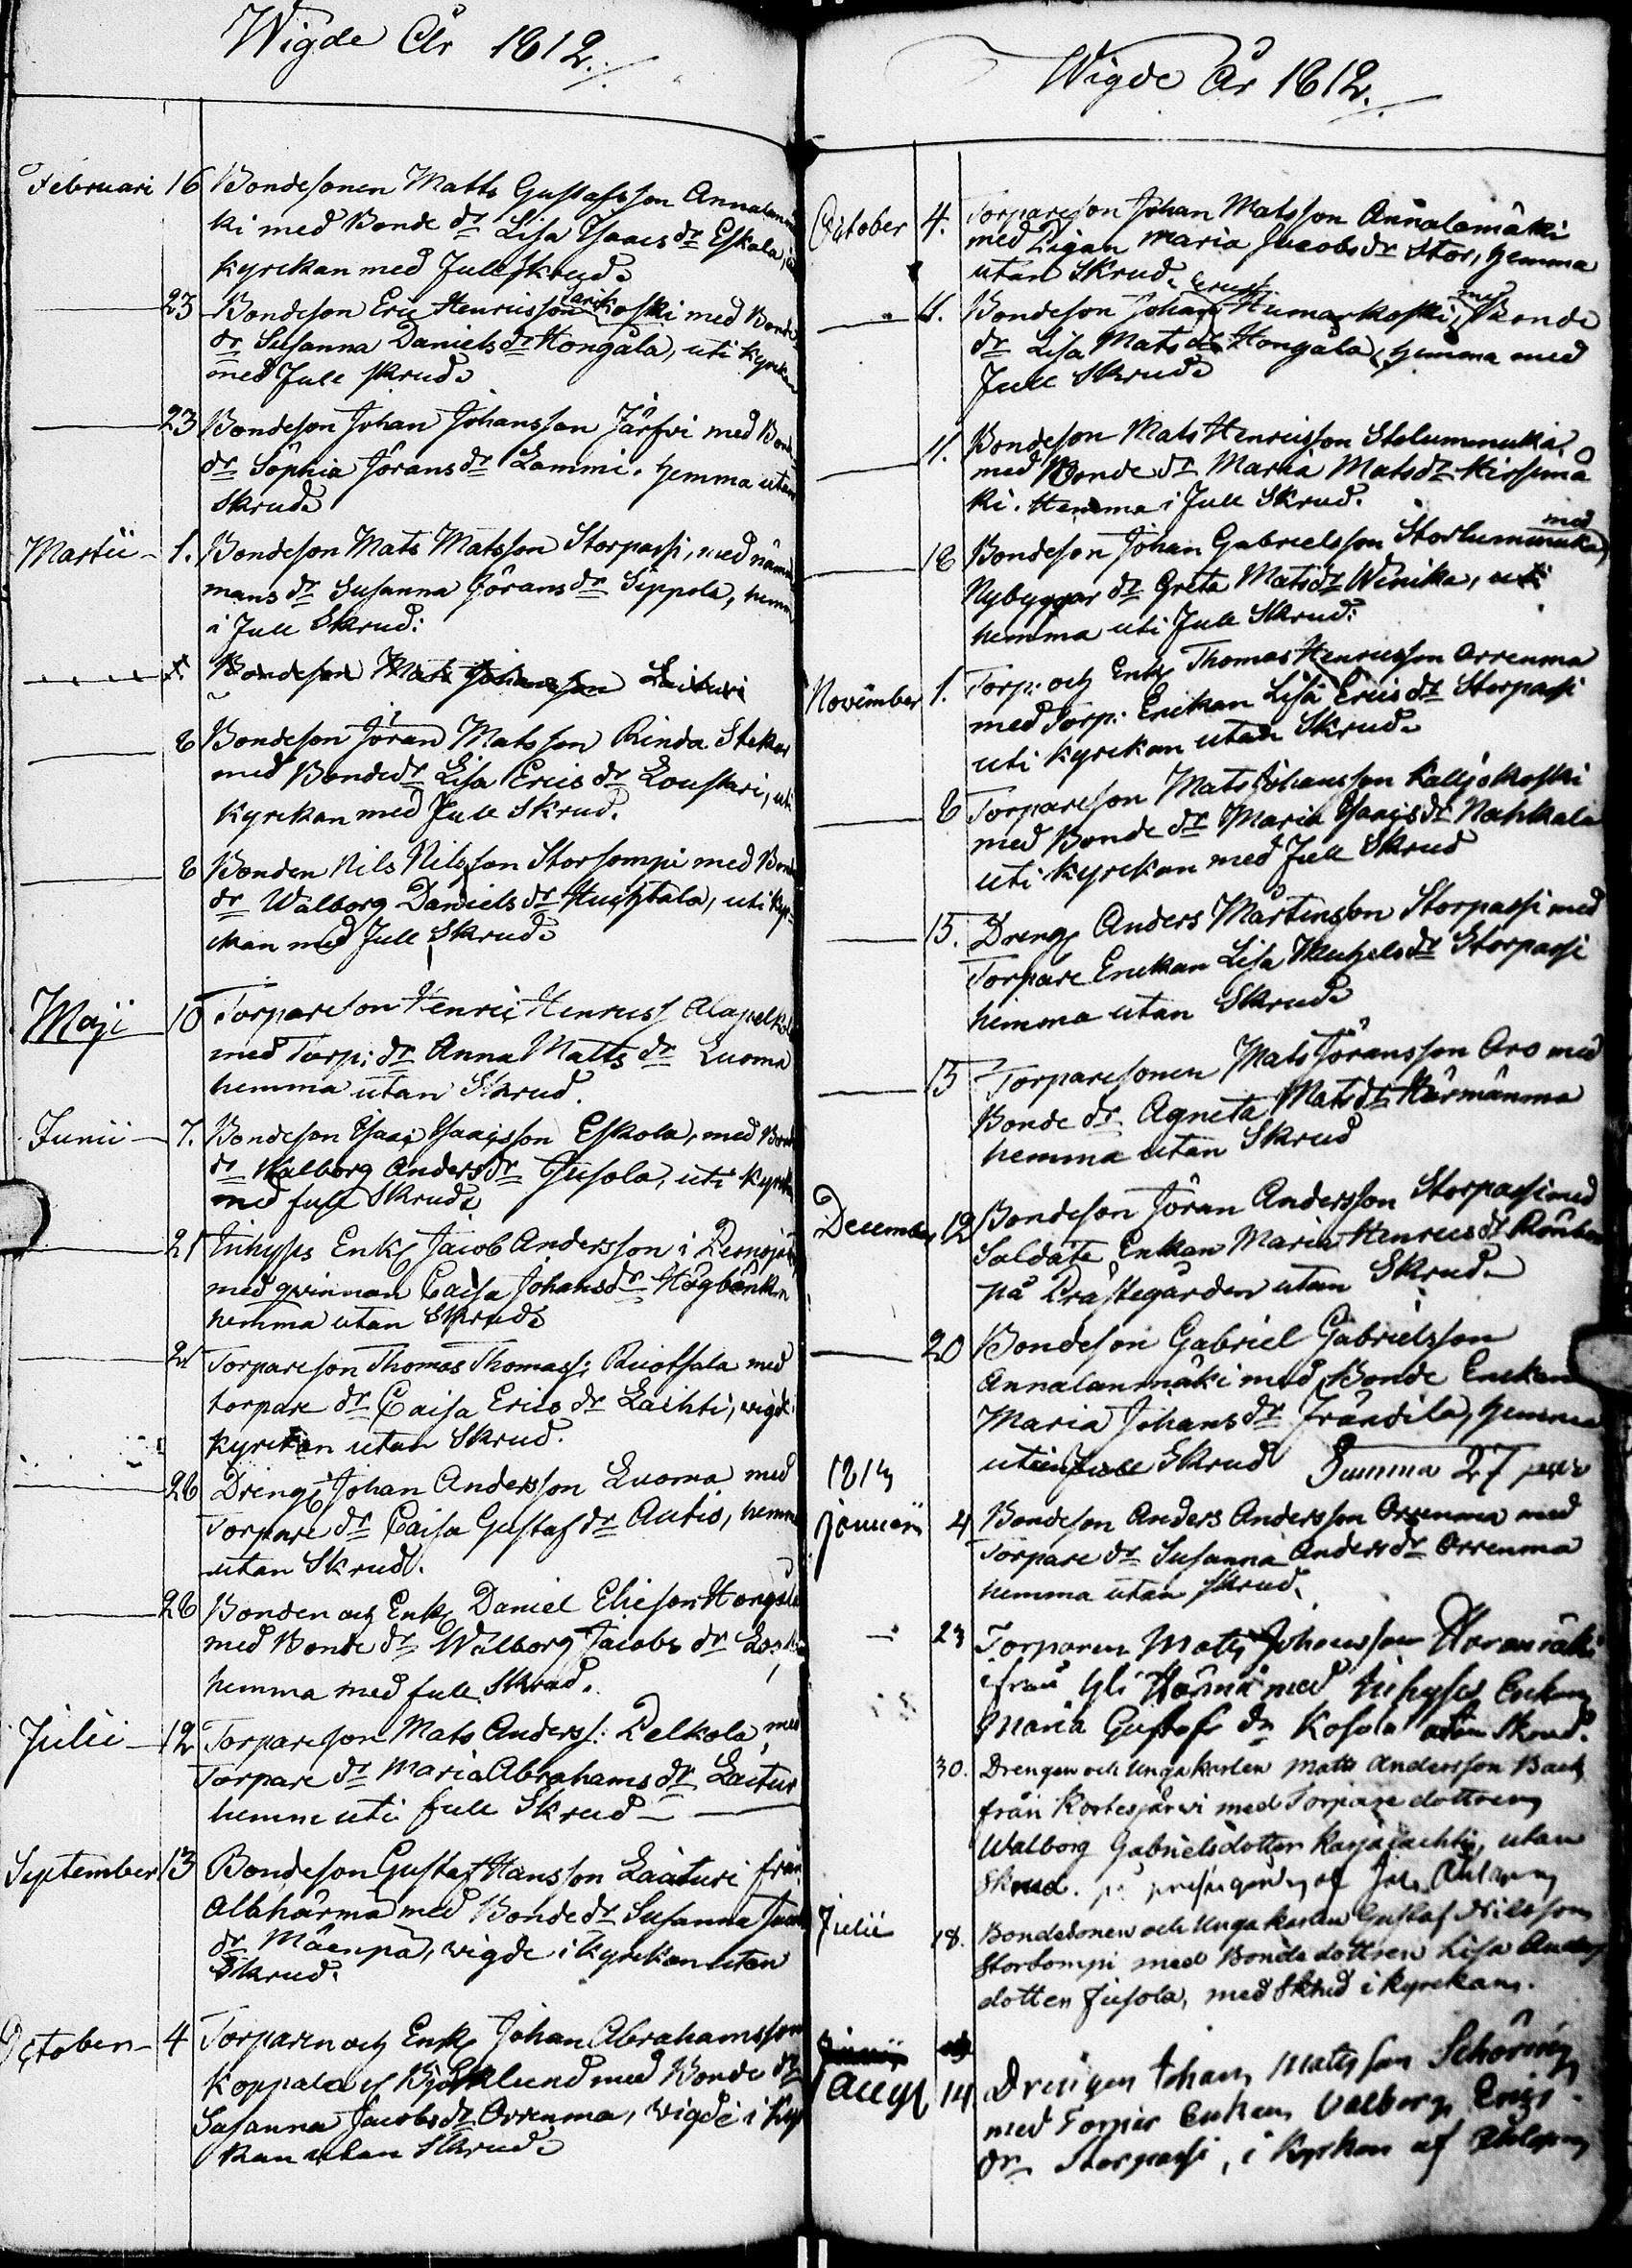 Wigde År 1812.
Februari 16 Bondesonen Matts Gustafsson Annalanmä
ki med Bonde dr Lisa Isaacs dr Eskola, i
kyrckan med full skrud.
23 Bondeson Eric Henricsson Koski med Bonde
dr Susanna Daniels dr Hongåla, uti kyrckan
med full skrud.
23 Bondeson Johan Johansson Järfvi med Bonde
dr Sophia Jörans dr Lammi. hemma utan
Skrud.
Martii 1. Bondeson Mats Matsson Storpassi, med näm
mans dr Susanna Jörans dr Seppola, hemma
i full Skrud:
Bondeson Mats Johansson Laituri
8 Bondeson Jöran Matsson Rinda Stekar
med Bonde dr Lisa Erics dr Louskari, uti
Kyrckan med full Skrud.
8 Bonden Nils Nilsson Storsompi med Bonde
dr Walborg Daniels dr Huchtala, uti kyr-
ckan med full Skrud.
Maji 10 Torpareson Henric Henricss. Alapelkola
med Torp: dr Anna Matts dr Luoma
hemma utan Skrud.
Junii 7. Bondeson Isaac Isaacsson Eskola, med Bonde
dr Walborg Anders dr Jusola, uti kyrckan
med full Skrud.
21 Inhyses Enkl Jacob Andersson i
med qvinnan Caisa Johans dr Högbänk
hemma utan Skrud.
21 Torpareson Thomas Thomass: Ruotsala med
torpare dr Caisa Erics dr Laihti, wigde
kyrckan utan Skrud.
26 Dreng Johan Andersson Luoma med
Torpare dr Caisa Gustafs dr Autio, hemma
utan Skrud.
26 Bonden och Enkl Daniel Elieson Hongåla
med Bonde dr Walborg Jacobs dr
hemma med full Skrud.
Julii 12 Torpareson Mats Anderss: Pelkola, med
Torpare dr Maria Abrahams dr Laitur
hemma uti full Skrud
September 13 Bondeson Gustaf Hansson Laaturi från
Alahärmä med Bonde dr Susanna Jacobs
dr Mäenpä, wigde i Kyrckan utan
Skrud.
October 4 Torparen och Enkl Johan Abrahamsson
Koppala el Björklund med Bonde dr
Susanna Jacobs dr Orrenma, wigde i Kyr
kan utan Skrud.
Wigde År 1812.
October 4. Torpareson Johan Matsson Annalamäki
med Pigan Maria Jacobs dr Stor, hemma
utan Skrud.
Ericss.
4. Bondeson Johan Humarkoski, med Bonde
dr Lisa Mats dr Hongåla, hemma med
full Skrud.
11. Bondeson Mats Henricsson Stolummuka,
med Bonde dr Maria Mats dr Kissimä
ki. Hemma i full Skrud.
18 Bondeson Johan Gabrielsson Storlummuka, med
Nybyggar dr Greta Mats dr Winika, uti
hemma uti full Skrud.
November 1. Torp: och Enkl Thomas Henricsson Orrenma
med Torp: Enckan Lisa Erics dr Storpassi
uti kyrckan utan Skrud.
8 Torpareson Mats Johansson Kalljokoski
med Bonde dr Maria Isaacs dr Nahkala
uti kyrckan med full Skrud
15. Dreng Anders Mårtinsson Storpassi med
Torpare Enckan Lisa Michels dr Storpassi
hemma utan Skrud.
15 Torparesonen Mats Jöransson Aro med
Bonde dr Agneta Mats dr Härmänma
hemma utan Skrud
December 12 Bondeson Jöran Andersson Storpassi med
Soldate Enkan Maria Henrics dr
på Prästegården utan Skrud.
20 Bondeson Gabriel Gabrielsson
Annalanmäki med Bonde Enckan
Maria Johans dr Frändila, hemma
uti full Skrud Summa 27 par
1813
januarii 4 Bondeson Anders Andersson Orrenma med
Torpare dr Susanna Anders dr Orrenma
hemma utan skrud.
23 Torparen Mats Johansson
ifrån Yli Härmä med Inhyses Enkan
Maria Gustafs dr Kosola utan Skrud.
30. Drengen och Ungakarlen Matts Andersson Back
från Kortesjärvi med Torpare dottren
Walborg Gabrielsdotter utan
Skrud. på prästgården af Joh.
Julii 18. Bondesonen och Ungakarlen Gustaf Nilsson
Storsompi med Bonde dottren Lisa Anders
dotter Jusola, med Skrud i kyrckan.
Aug. 14 Drengen Johan Matsson
med Torpar Enkan Valborg Erics
dr Storpassi, i Kyrkan af